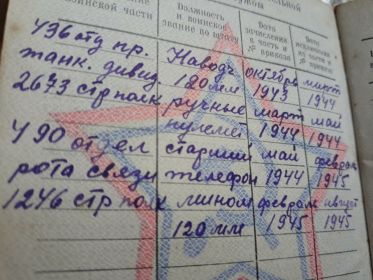 воинской части
Должность и воинское звание по штату
Дата зачисления в часть и № приказа
Дата исключения из части и № приказа
436 отд пр. Наводч октябрь март
танк. дивиз 120 мм 1943 1944
2673 стр полк ручные март май
пулемет 1944 1944
490 отдел старший май февраль
рота связи телефон 1944 1945
1246 стр полк мином февраль август
120 мм 1945 1945